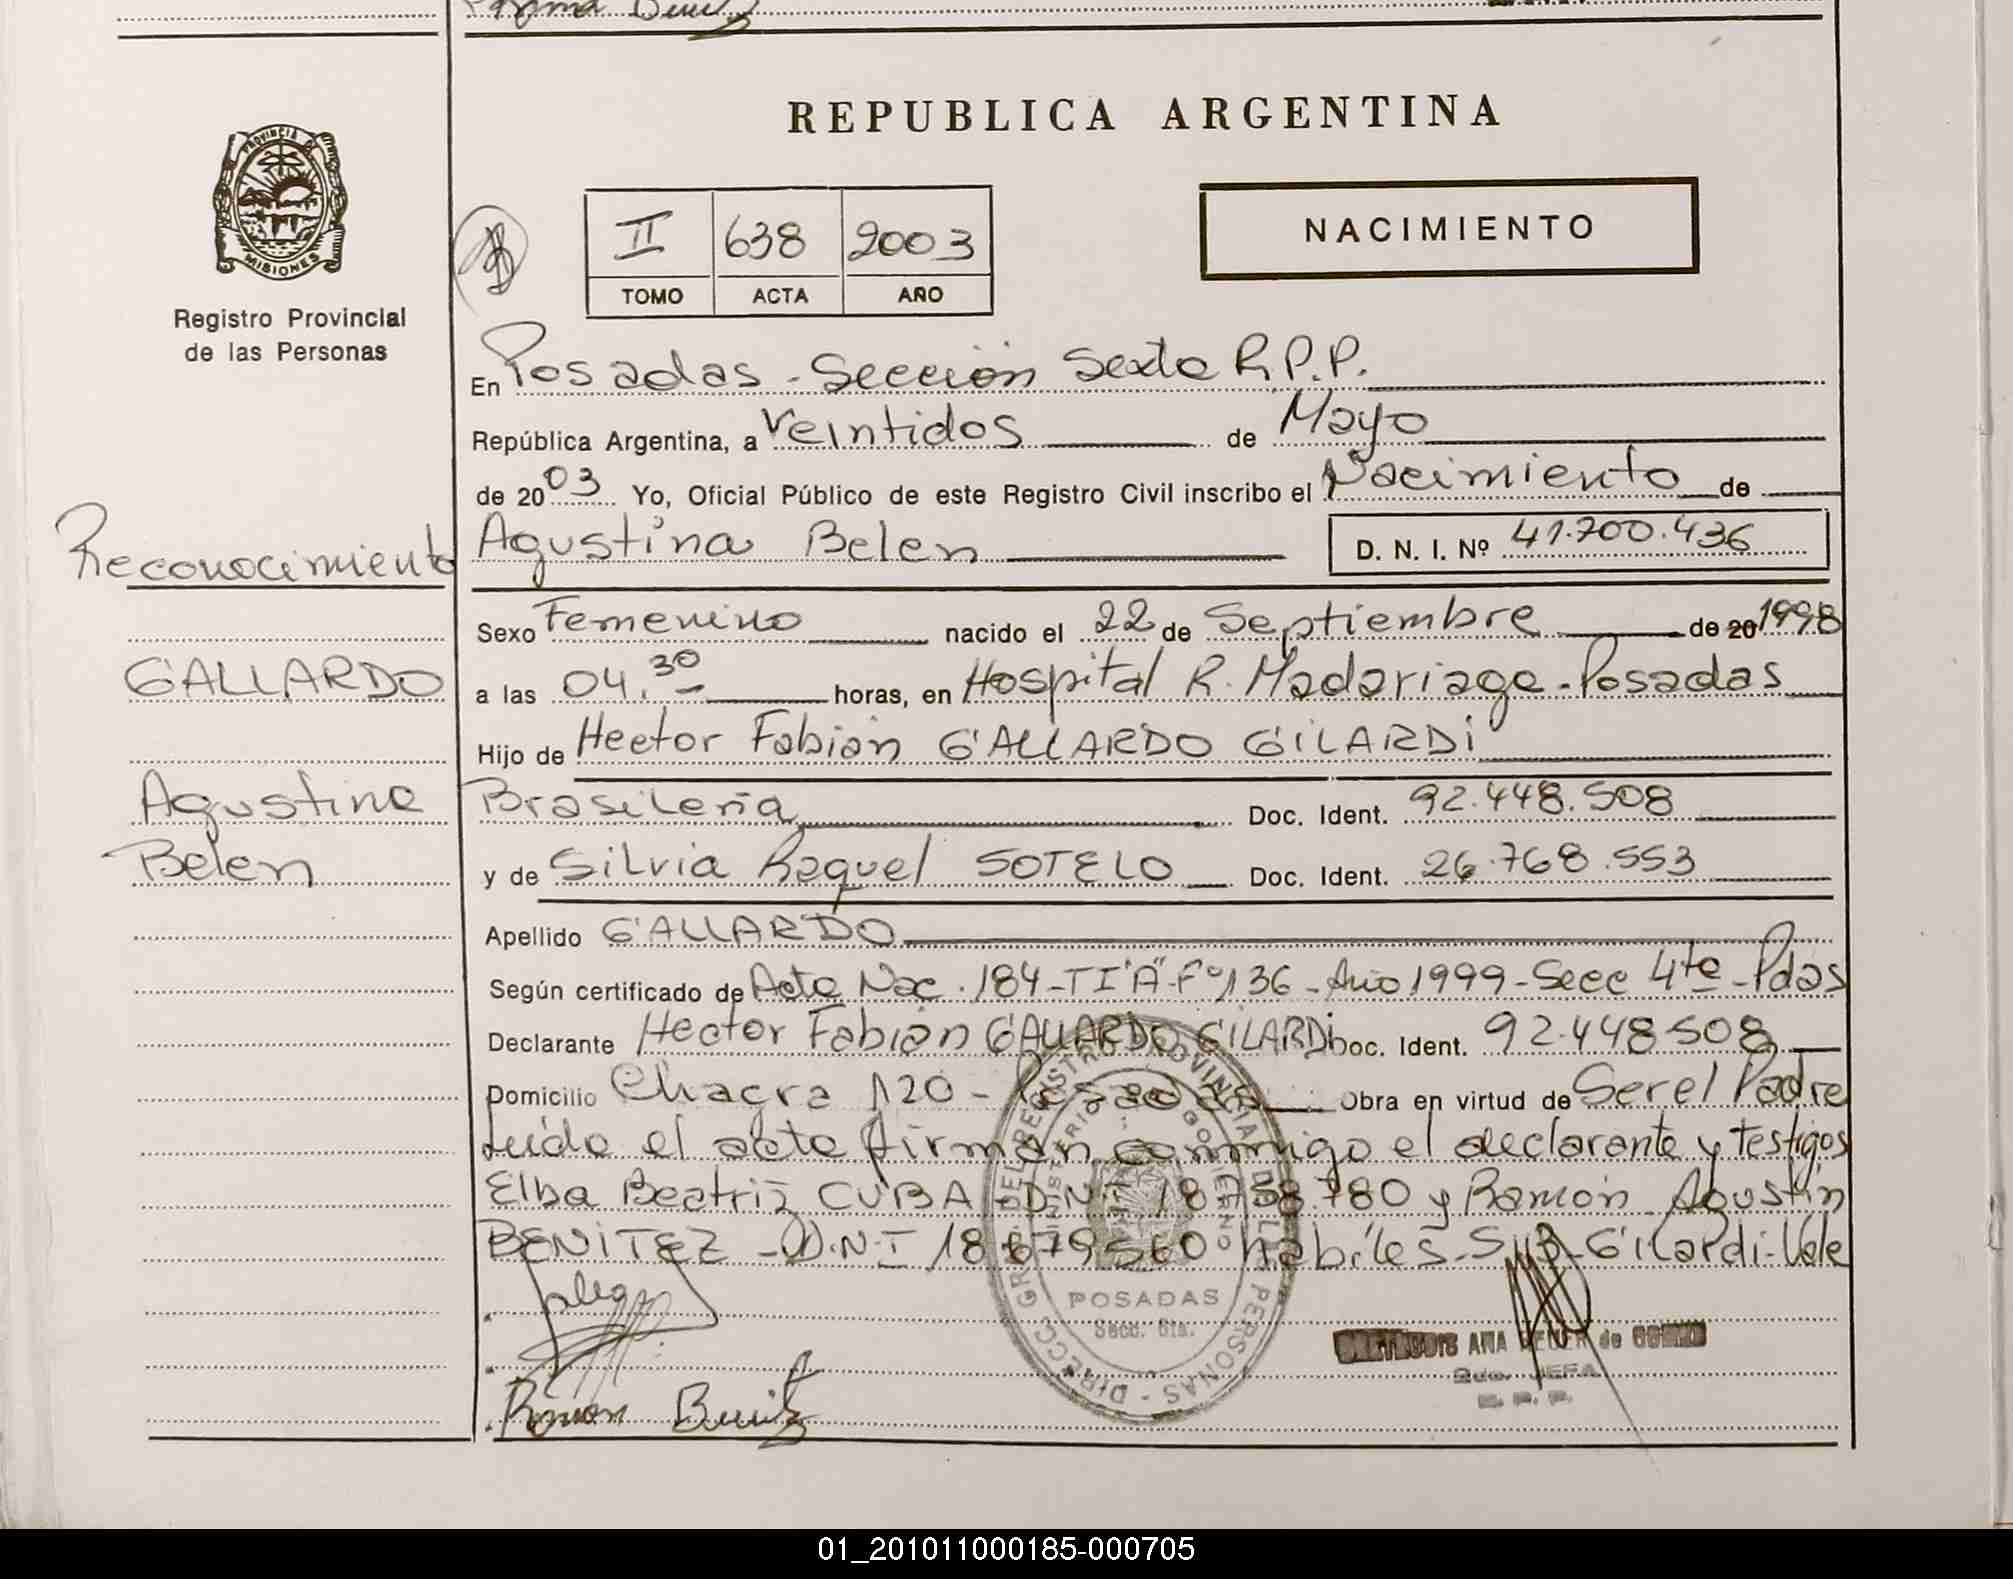 REPUBLICA ARGENTINA
PROVINCIA DE
MISIONES
Registro Provincial
de las Personas
II 638 2003
TOMO ACTA AÑO
NACIMIENTO
En Posadas - Sección Sexta R.P.P.
República Argentina, a Veintidos de Mayo
de 2003 Yo, Oficial Público de este Registro Civil inscribo el Nacimiento de
Agustina Belen D. N. I. Nº 41.700.436
Reconocimiento
GALLARDO
Agustina
Belen
Sexo Femenino nacido el 22 de Septiembre de 20 1998
a las 04.30 horas, en Hospital R. Madariaga - Posadas
Hijo de Hector Fabian GALLARDO GILARDI
Brasileña Doc. Ident. 92.448.508
y de Silvia Raquel SOTELO Doc. Ident. 26.768.553
Apellido GALLARDO
Según certificado de Acta Nac. 184-TI"A"-Fº136-Año 1999-Secc 4ta-Pdas
Declarante Hector Fabian GALLARDO GILARDI Doc. Ident. 92.448.508
Domicilio Chacra 120 - Posadas Obra en virtud de Ser el Padre
Leida el acta firman conmigo el declarante y testigos
Elba Beatriz CUBA D.N.I 18.758.780 y Ramón Agustin
BENITEZ - D.N.I 18.679.560 habiles - S/B - Gilardi - Vale
POSADAS
Secc. 6ta.
Ramon Benitez
ANA de
2da. JEFA
01_201011000185-000705